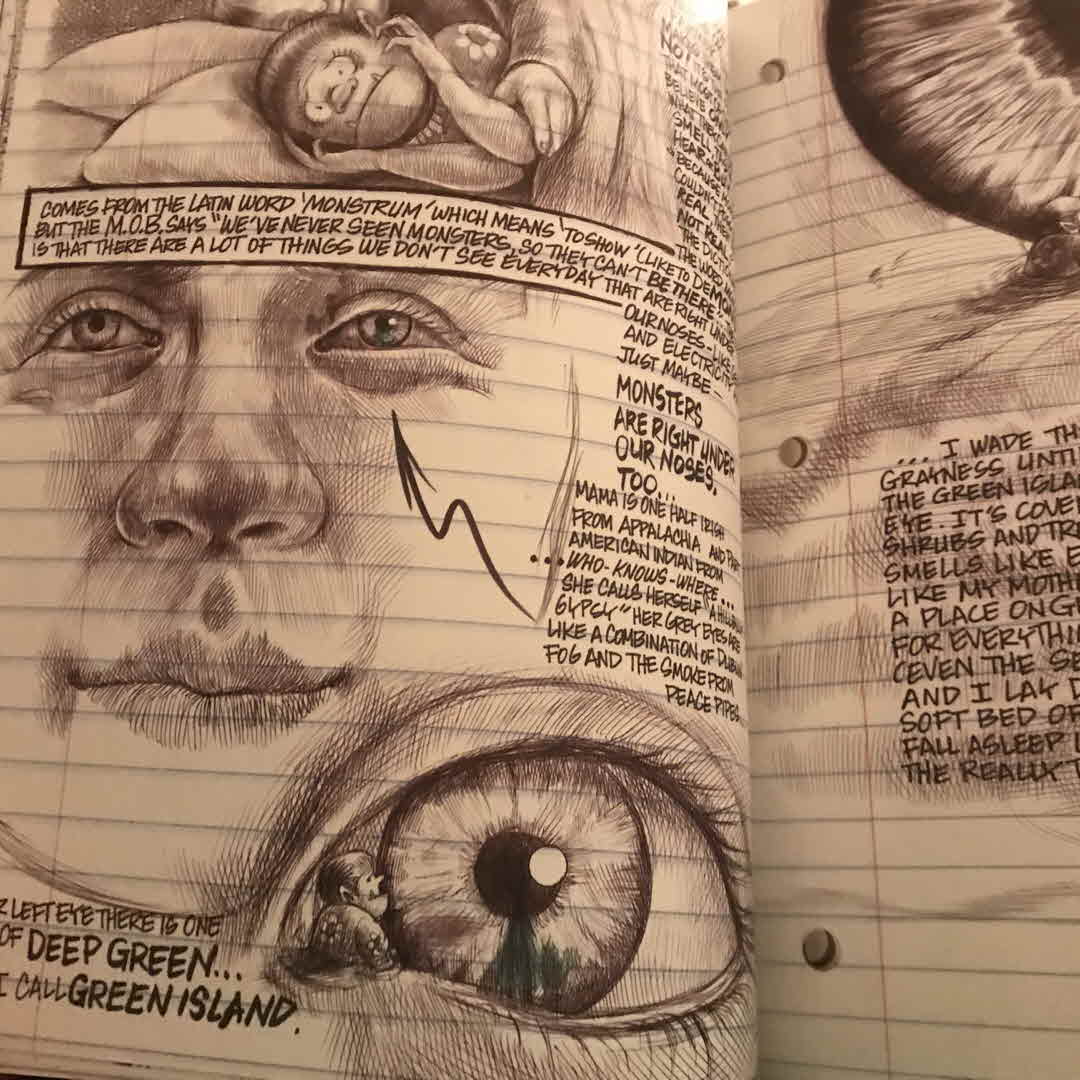 NOT
BELIEVE
WHAT THEY
SMELL
HEAR
BECAUSE
COULDN'T
REAL
NOT REAL
THE DICT
THE WORD
COMES FROM THE LATIN WORD 'MONSTRUM' WHICH MEANS 'TO SHOW' (LIKE TO DEMON
BUT THE M.O.B. SAYS "WE'VE NEVER SEEN MONSTERS, SO THEY CAN'T BE THERE."
IS THAT THERE ARE A LOT OF THINGS WE DON'T SEE EVERYDAY THAT ARE RIGHT UNDER
OUR NOSES-LIKE
AND ELECTRICITY
JUST MAYBE-
MONSTERS
ARE RIGHT UNDER
OUR NOSES,
TOO...
MAMA IS ONE HALF IRISH
FROM APPALACHIA AND PART
AMERICAN INDIAN FROM
...WHO-KNOWS-WHERE...
SHE CALLS HERSELF "A HILLBILLY
GYPSY" HER GREY EYES ARE
LIKE A COMBINATION OF DUBLIN
FOG AND THE SMOKE FROM
PEACE PIPES
R LEFT EYE THERE IS ONE
OF DEEP GREEN...
I CALL GREEN ISLAND.
... I WADE TH
GRAYNESS UNTI
THE GREEN ISLA
EYE. IT'S COVE
SHRUBS AND TR
SMELLS LIKE E
LIKE MY MOTH
A PLACE ON G
FOR EVERYTHI
(EVEN THE SE
AND I LAY D
SOFT BED OF
FALL ASLEEP I
THE REALLY T